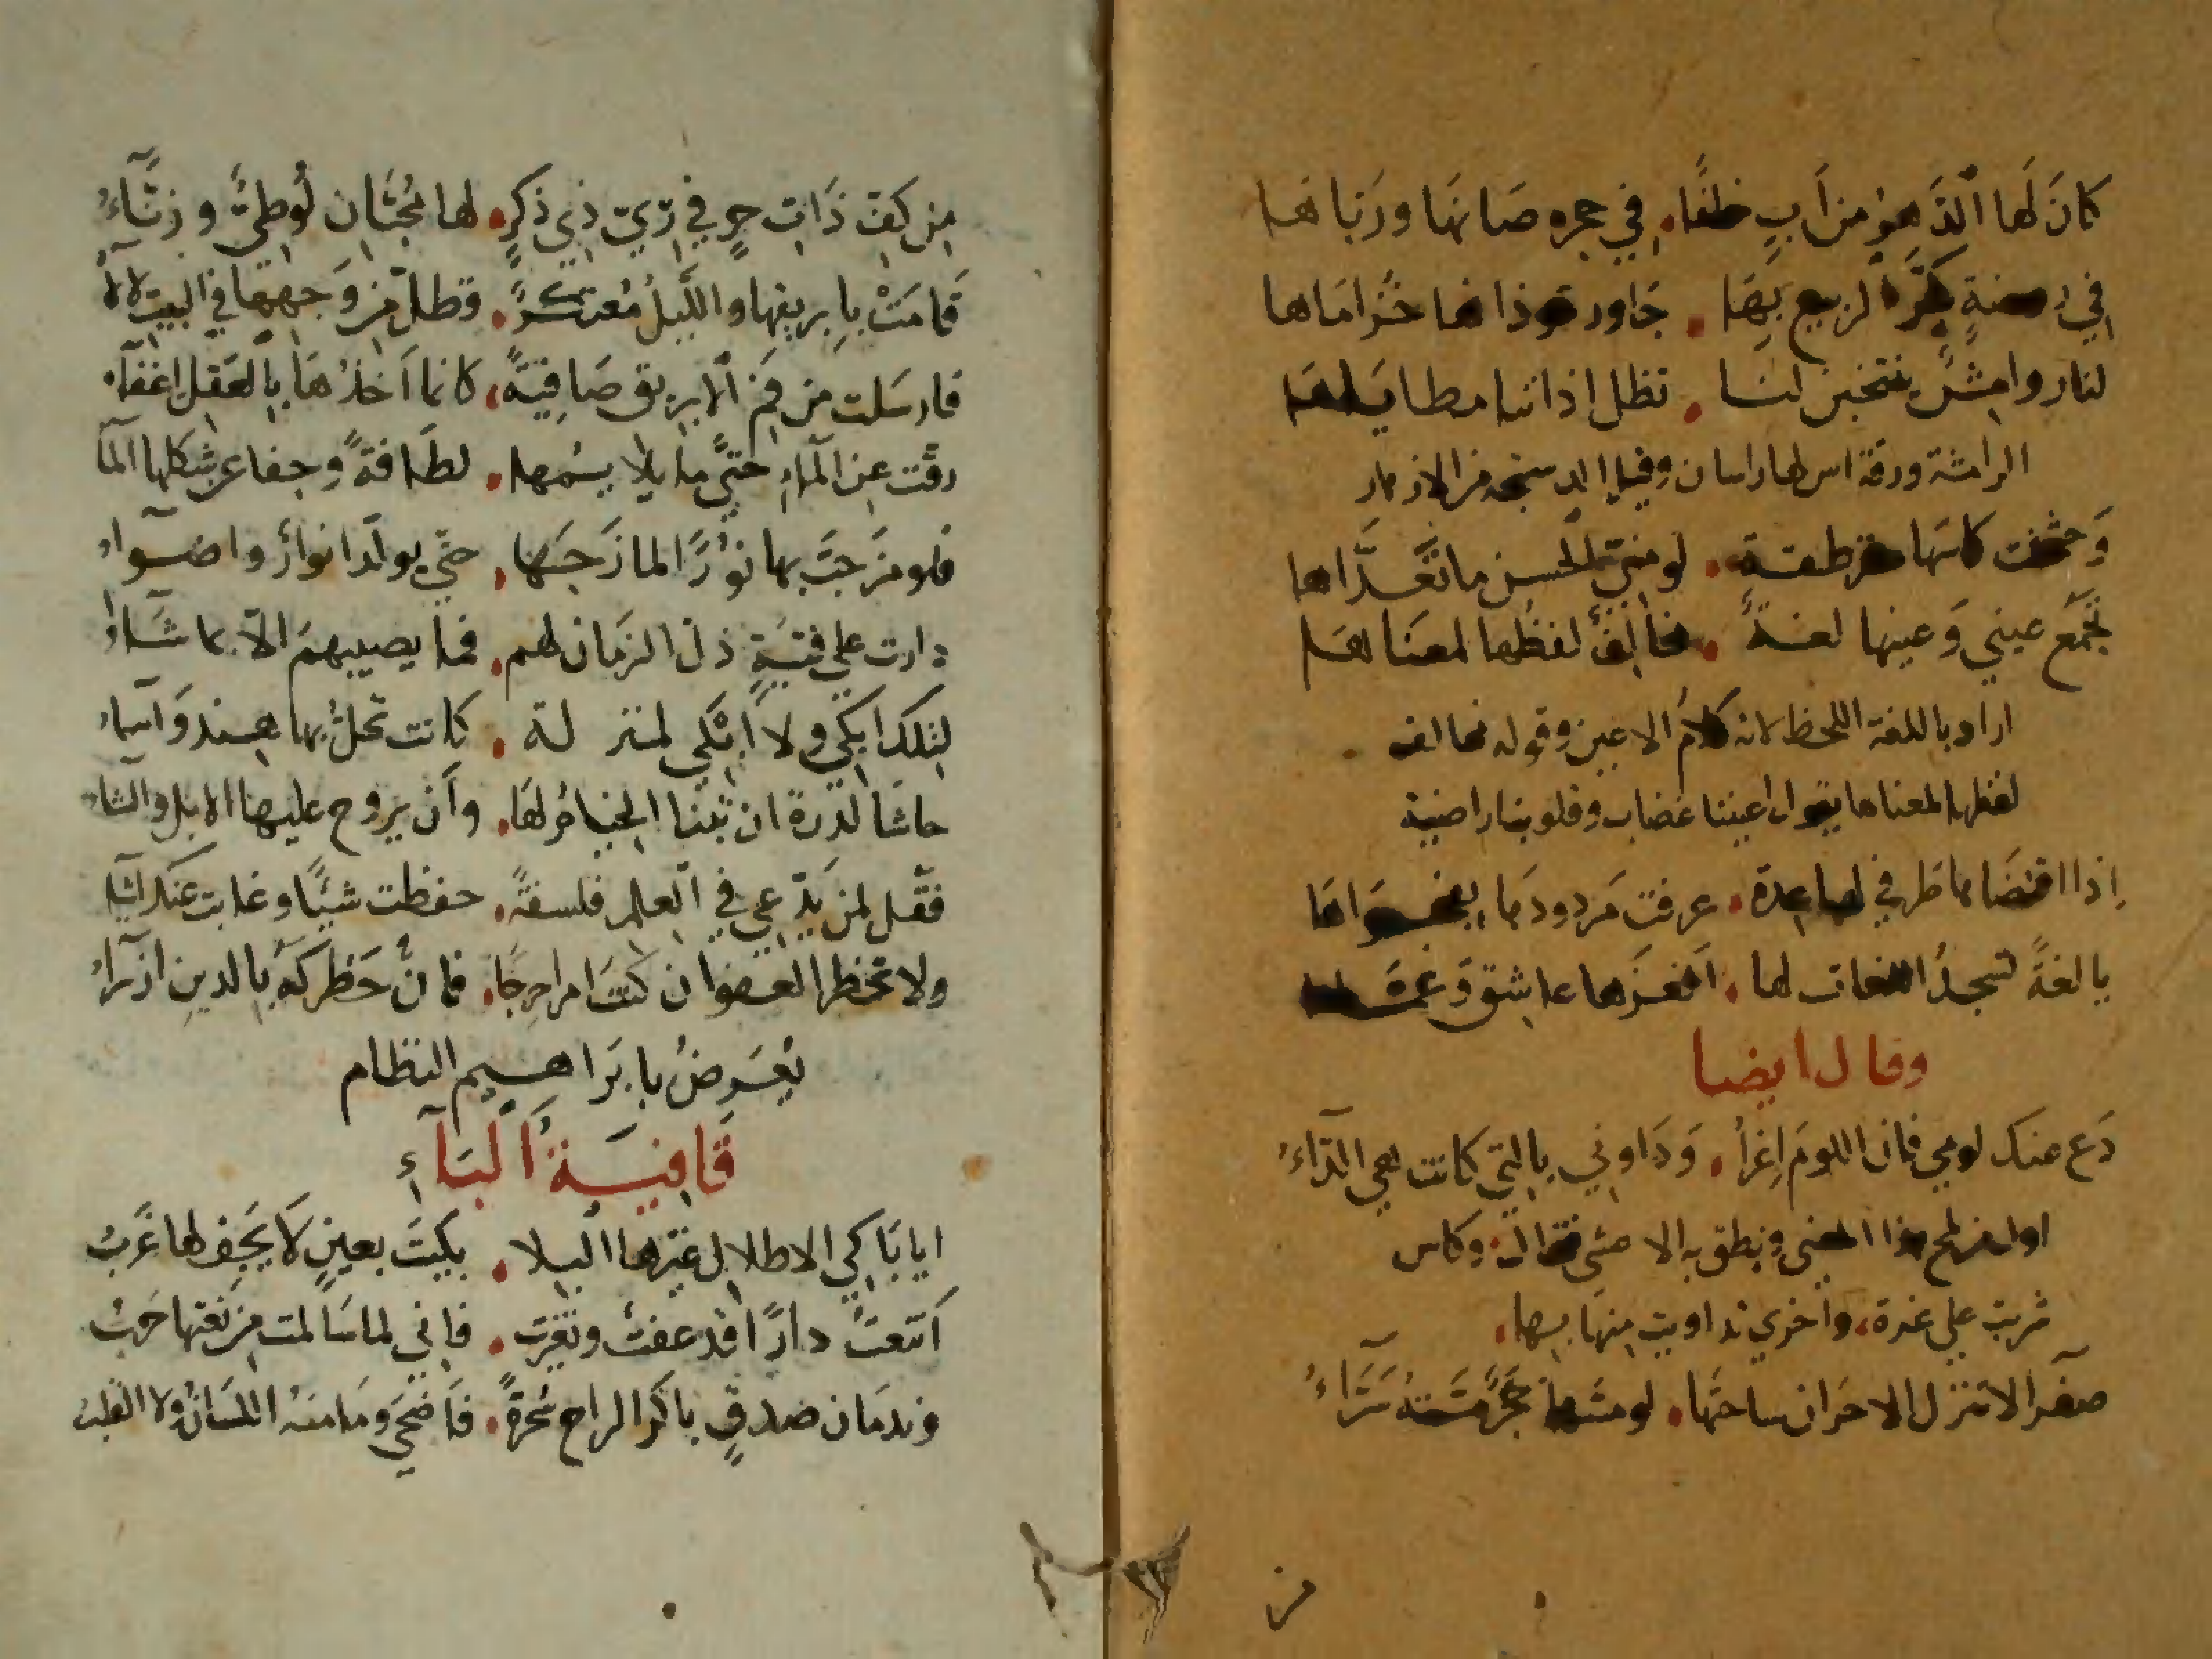 كانَ لَها الدَّهرُ من اَبٍ خلفًا. في حجره صَانَها ورَبّاهَا
في روضةٍ بكّر الربيع بِهَا. جَاور خُزامَاها
لنا روامِشٌ ينتخبن لنا. تظل اذاننا مطاياها
الرامشة ورقة اس لها راسان وقيل من الازهار
وَحثحثت كاسَها مقرطقة. لو مني الحسن ما تعَدَّاها
تجمَع عيني وَعينها لغةٌ. مخالفٌ لفظُها لمعنَاها
اراد باللغة اللحظ لانه كلامُ الاعين وقوله مخالف
لفظها لمعناها يقول اعيننا غضاب وقلوبنا راضية
اِذا اقتضَاها طَرفي لها عدة. عرفت مَردودَها بفحواهَا
يا لغةً تسجدُ اللغات لها. اَلغزَها عاشق وَعمّاها
وقال ايضا
دَع عنك لومي فان اللومَ اِغرأ. وَدَاوني بالتي كانت هي الدّاءُ
اول من لمح هذا المعنى ونطق به الاعشى فقال وكاس
شربت على لذة، واخرى تداويت منها بها.
صفرا لا تنزل الاحزان ساحتَها. لو مسّها حجَرٌ مَسَّتهُ سَرَّاءُ
من
مِن كفّ ذَاتِ حِرٍ في زيّ ذي ذكرٍ. لها مُحبّان لُوطِيٌّ وزنَّاءُ
قامَتْ بإبريقها والليلُ مُعتكرٌ. فظلّ من وَجهها في البيت لالأُ
فارسَلت من فم الابريق صَافيَةً. كانما اَخذُهَا بِالعَقلِ اِغفآءُ
رقّت عن المآءِ حتّى ما يلايمُها. لطَافةً وجفا عن شكلها المآ
فلو مزَجتَ بها نوُرًا لمازَجَها. حتى تولّد انوارٌ واضوآءُ
دارت على فتيَةٍ ذلّ الزمَان لهم. فما يصيبهمُ الاّ بما شَآؤا
لتلك ابكي ولا ابْكي لمنزلة. كانت تحلُّ بها هندٌ وَاَسمآءُ
حاشا لدرة ان تبنا الخيامُ لهَا. واَن يروح عليها الابل والشاء
فقل لمن يدّعي في العلم فلسفةً. حفظت شيئًا وغابت عنك اشيآ
ولا تحظر العفو ان كنتَ امرا حرجًا. فانّ حَظركهُ بالدين ازرآءُ
يُعَرِضُ بابرَاهيم النظام
قَافِيَةُ اَلبَآءِ
ايا بَاكي الاطلال غيّرها البلا. بكيتَ بعينٍ لاَ يَجِف لها غَربُ
اَتنعتُ دارًا قد عفتْ وتغيرت. فاني لما سَالمت من نعتها حَربُ
وندمَان صدقٍ باكرَ الراح سُحرةً. فاَضحَى ومَا منهُ اللسَانُ ولا القلبُ